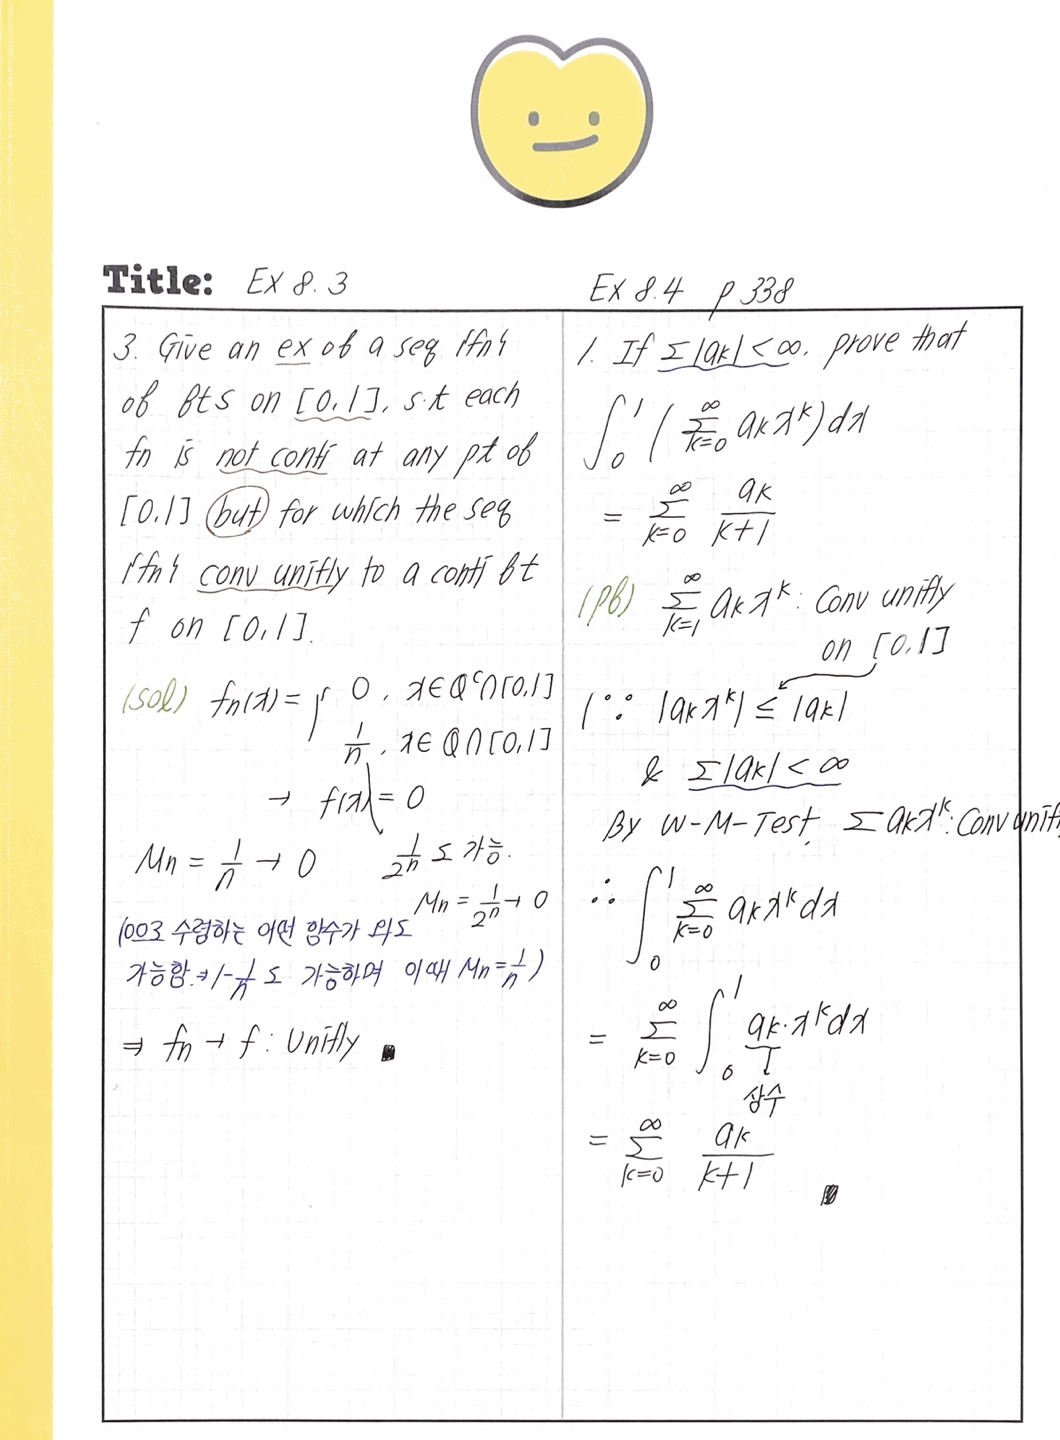 Title: Ex 8.3
3. Give an ex of a seq {fn}
of fts on [0,1], s.t each
fn is not conti at any pt of
[0,1] but for which the seq
{fn} conv unifly to a conti ft
f on [0,1].
(sol) fn(x) = { 0, x∈Qᶜ∩[0,1]
1/n, x∈Q∩[0,1]
→ f(x) = 0
Mn = 1/n → 0 1/2ⁿ도 가능.
Mn = 1/2ⁿ → 0
(0으로 수렴하는 어떤 함수가 와도
가능함. → 1-1/n도 가능하며 이때 Mn = 1/n)
⇒ fn → f : Unifly ■
Ex 8.4 p 338
1. If Σ|ak| < ∞, prove that
∫₀¹ (Σ_{k=0}^{∞} ak x^k) dx
= Σ_{k=0}^{∞} ak/(k+1)
(pf) Σ_{k=1}^{∞} ak x^k : Conv unifly
on [0,1]
(∵ |ak x^k| ≤ |ak|
& Σ|ak| < ∞
By W-M-Test, Σ ak x^k : Conv unif
∴ ∫₀¹ Σ_{k=0}^{∞} ak x^k dx
= Σ_{k=0}^{∞} ∫₀¹ ak·x^k dx
상수
= Σ_{k=0}^{∞} ak/(k+1)
■